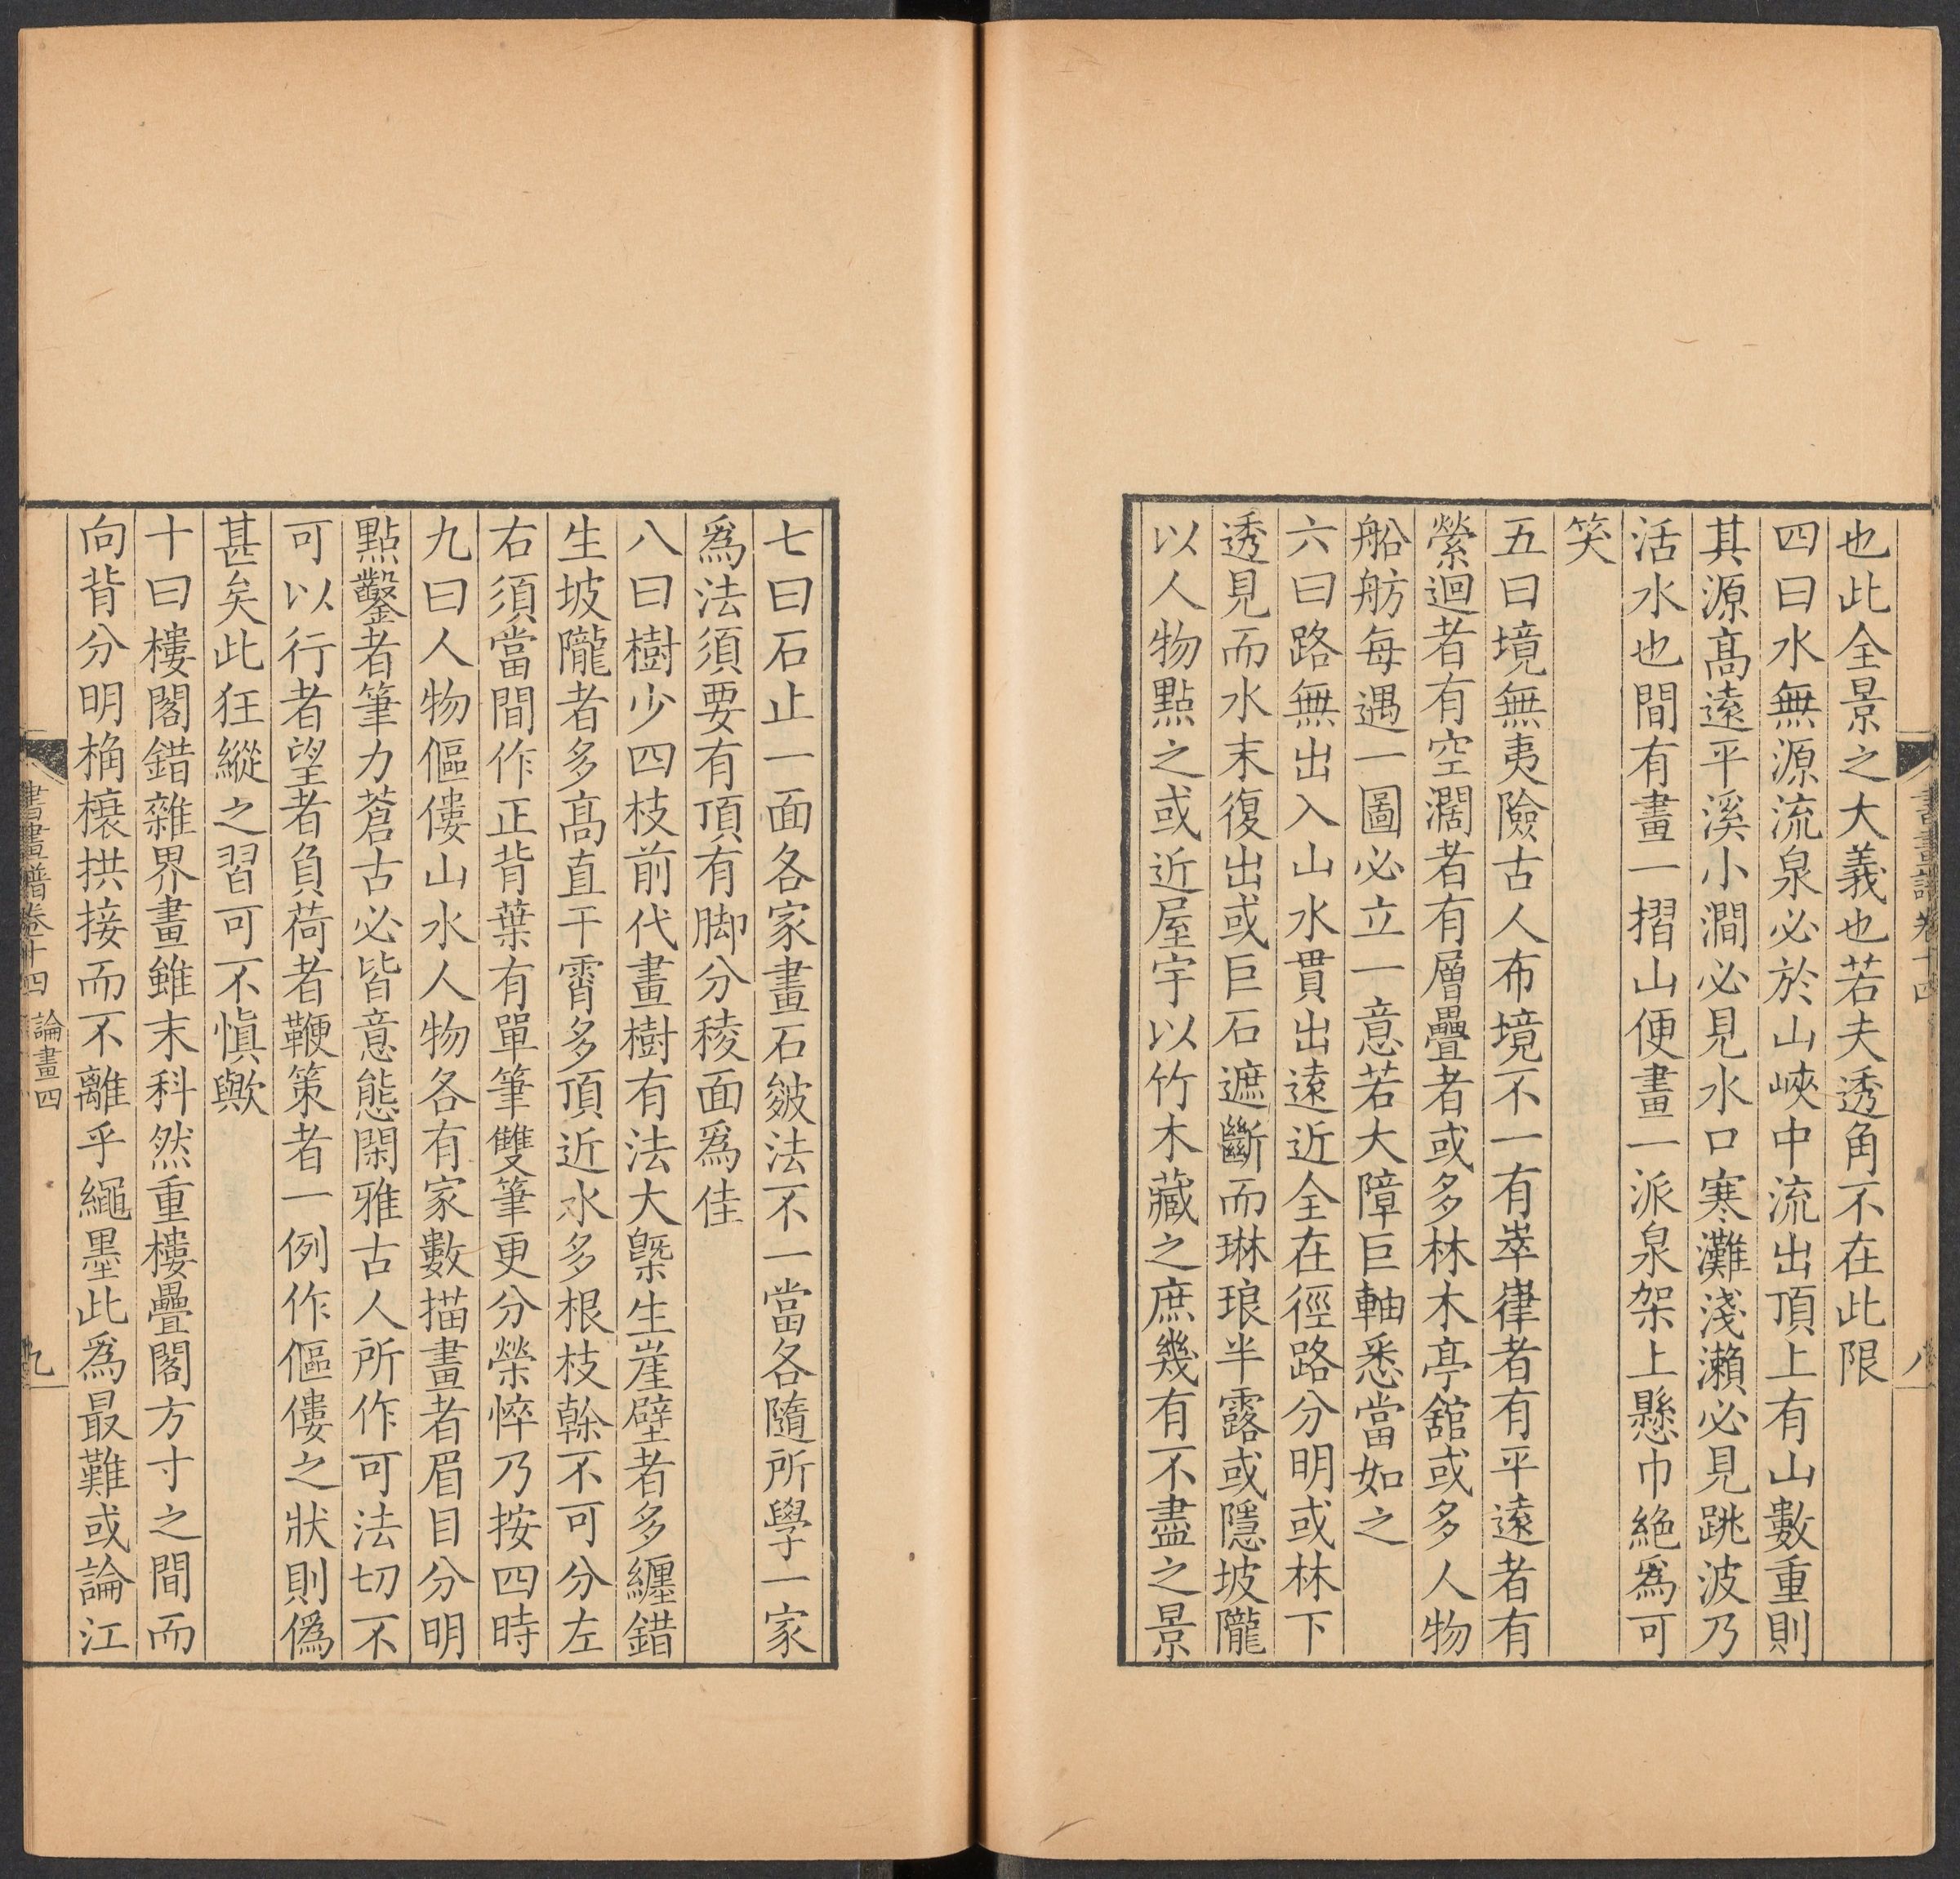 也此全景之大義也若夫透角不在此限
四曰水無源流泉必於山峽中流出頂上有山數重則
其源高遠平溪小澗必見水口寒灘淺瀨必見跳波乃
活水也間有畫一摺山便畫一派泉架上懸巾絕爲可
笑
五曰境無夷險古人布境不一有崒嵂者有平遠者有
縈迴者有空濶者有層疊者或多林木亭舘或多人物
船舫每遇一圖必立一意若大障巨軸悉當如之
六曰路無出入山水貫出遠近全在徑路分明或林下
透見而水末復出或巨石遮斷而琳琅半露或隱坡隴
以人物點之或近屋宇以竹木藏之庶幾有不盡之景
七曰石止一面各家畫石皴法不一當各隨所學一家
爲法須要有頂有脚分稜面爲佳
八曰樹少四枝前代畫樹有法大槩生崖壁者多纏錯
生坡隴者多高直干霄多頂近水多根枝榦不可分左
右須當間作正背葉有單筆雙筆更分榮悴乃按四時
九曰人物傴僂山水人物各有家數描畫者眉目分明
點鑿者筆力蒼古必皆意態閑雅古人所作可法切不
可以行者望者負荷者鞭策者一例作傴僂之狀則僞
甚矣此狂縱之習可不愼歟
十曰樓閣錯雜界畫雖末科然重樓疊閣方寸之間而
向背分明桷榱拱接而不離乎繩墨此爲最難或論江
書畫譜卷十四 論畫四
九